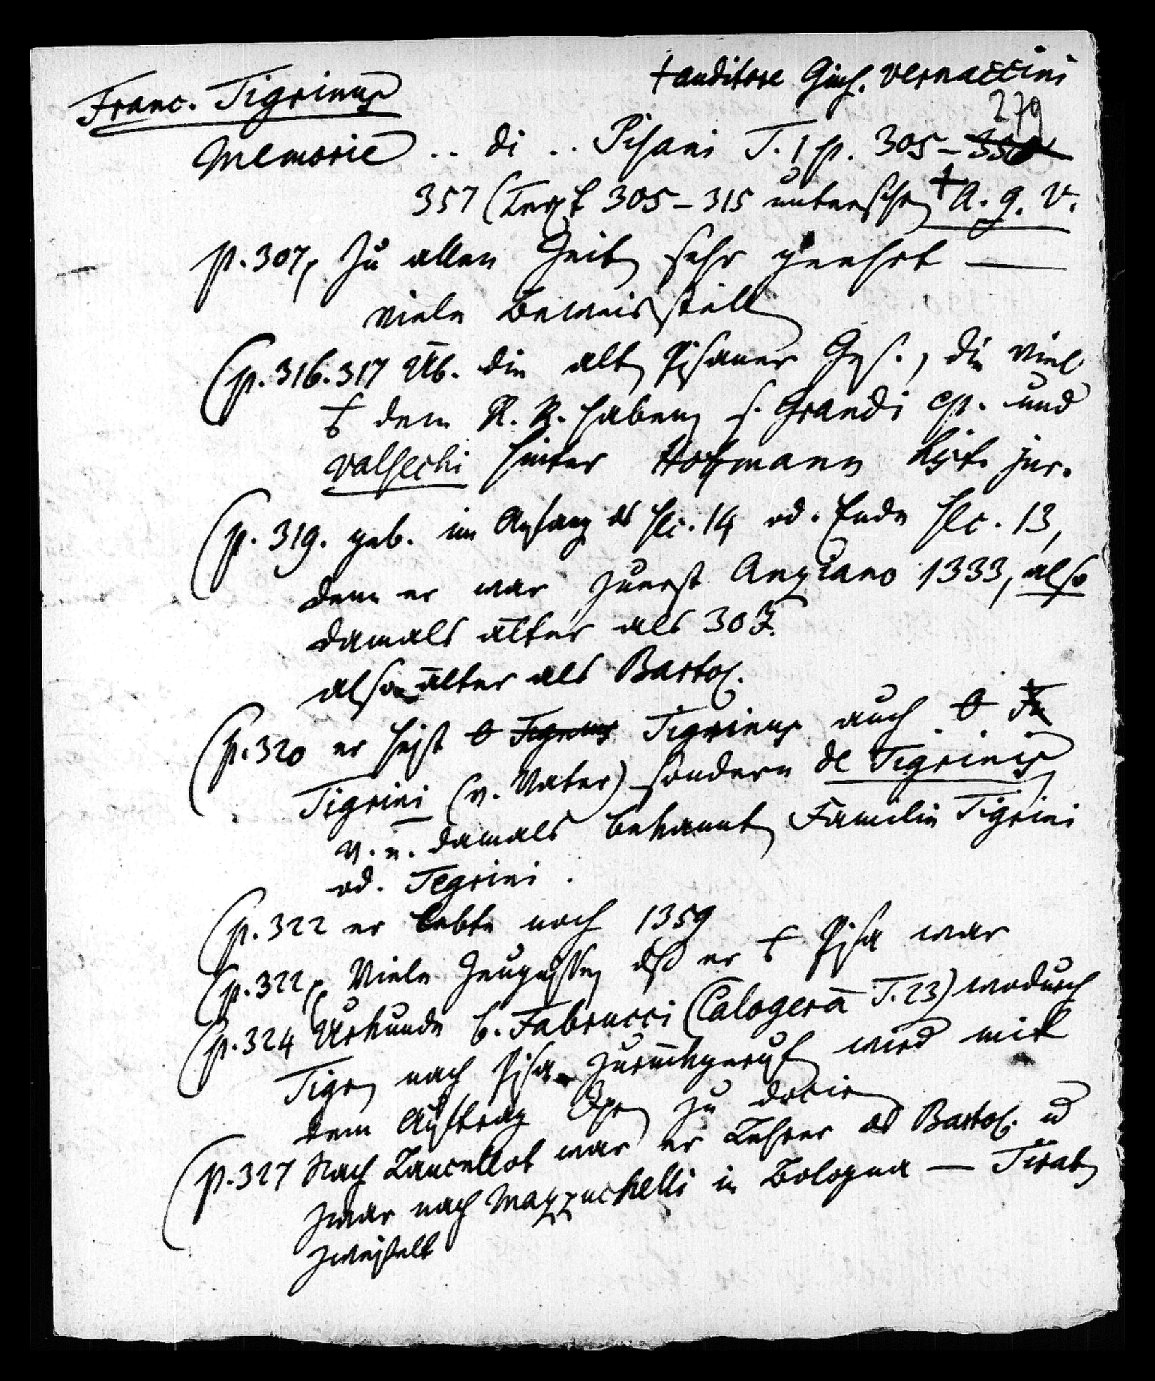 † auditore Giu§. vernaccini
279
Franc. Tigrinus
Memorie .. di .. Pisani T. 1 p. 305 – 356
357 (Text 305 – 315 unterschr † A. g. V.
p. 307, Zu allen Zeiten sehr geehrt —
viele Beweisstellen
(p. 316. 317 Üb. die alten Pisaner Ges., die viel
dem R. R. haben, s. Grandi ep. und
Valsechi hinter Hofmann hist. jur.
(p. 319. geb. im Anfang des sec. 14 od. Ende sec. 13,
denn er war zuerst Anziano 1333, also
damals älter als 30 J.
also älter als Bartol.
(p. 320 er heist Tigrinus Tigrinus auch
Tigrini (v. Vater) sondern de Tigrinis
v. e. damals bekannten Familie Tigrini
od. Tegrini.
(p. 322 er lebte noch 1359
(p. 322, Viele Zeugnisse, dß er Pisa war
(p. 324 Urkunde b. Fabrucci (Calogerà T. 23) wodurch
Tigr nach Pisa zurückgerufen wird mit
dem Auftrag zu dociren
(p. 327 Nach Lancellot war er Lehrer des Bartol. u
zwar nach Mazzuchelli in Bologna — Tirab
zweifelt